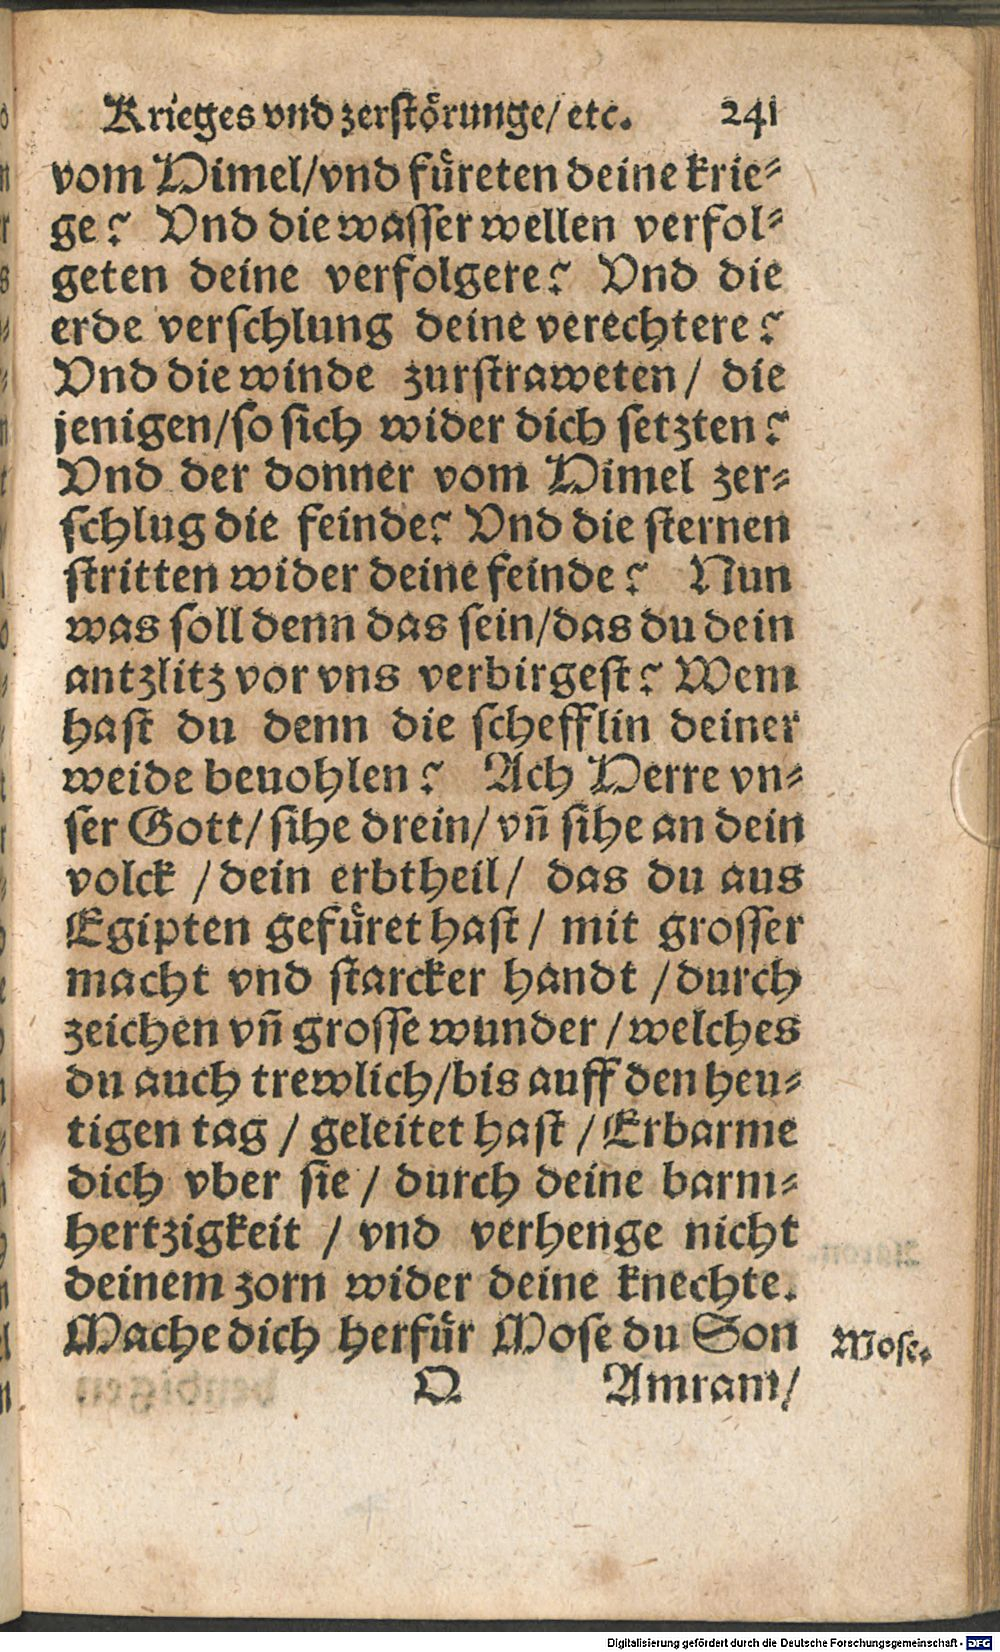 Krieges vnd zerstoͤrunge/ etc. 241
vom Himel/vnd fuͤreten deine krie⸗
ge? Vnd die wasser wellen verfol⸗
geten deine verfolgere? Vnd die
erde verschlung deine verechtere?
Vnd die winde zurstraweten/ die
jenigen/so sich wider dich setzten?
Vnd der donner vom Himel zer⸗
schlug die feinde? Vnd die sternen
stritten wider deine feinde? Nun
was soll denn das sein/das du dein
antzlitz vor vns verbirgest? Wem
hast du denn die schefflin deiner
weide beuohlen? Ach Herre vn⸗
ser Gott/ sihe drein/ vn̄ sihe an dein
volck /dein erbtheil/ das du aus
Egipten gefuͤret hast/ mit grosser
macht vnd starcker handt /durch
zeichen vn̄ grosse wunder /welches
du auch trewlich/bis auff den heu⸗
tigen tag / geleitet hast /Erbarme
dich vber sie / durch deine barm⸗
hertzigkeit / vnd verhenge nicht
deinem zorn wider deine knechte.
Mache dich herfuͤr Mose du Son
Mose.
Q Amram/
Digitalisierung gefördert durch die Deutsche Forschungsgemeinschaft - DFG